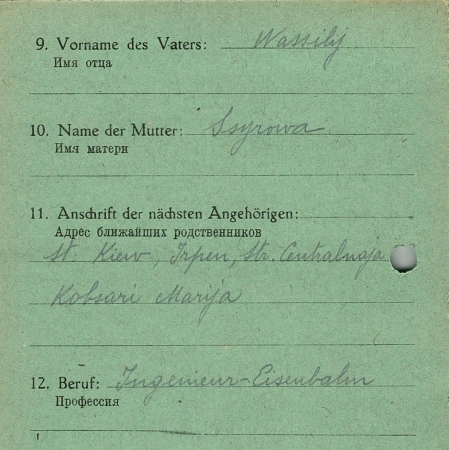 9. Vorname des Vaters: Wassilij
Имя отца
10. Name der Mutter: Ssyrowa
Имя матери
11. Anschrift der nächsten Angehörigen:
Адрес ближайших родственников
st. Kiew, Irpen, Str. Centralnaja
Kobsari Marija
12. Beruf: Ingenieur-Eisenbahn
Профессия